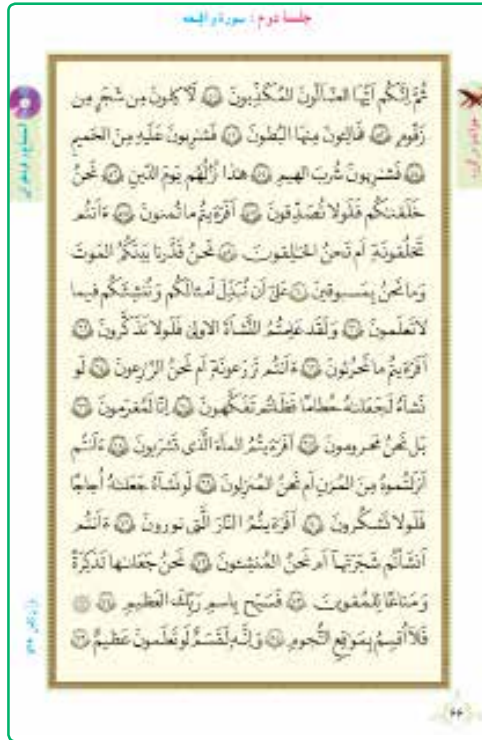 جلسه دوم : سوره واقعه
ثُمَّ اِنَّكُم اَيُّهَا الضّالّونَ المُكَذِّبونَ ﴿٥١﴾ لَآكِلونَ مِن شَجَرٍ مِن
زَقّومٍ ﴿٥٢﴾ فَمالِئونَ مِنهَا البُطونَ ﴿٥٣﴾ فَشارِبونَ عَلَيهِ مِنَ الحَميمِ
﴿٥٤﴾ فَشارِبونَ شُربَ الهيمِ ﴿٥٥﴾ هٰذا نُزُلُهُم يَومَ الدّينِ ﴿٥٦﴾ نَحنُ
خَلَقناكُم فَلَولا تُصَدِّقونَ ﴿٥٧﴾ اَفَرَءَيتُم ما تُمنونَ ﴿٥٨﴾ ءَاَنتُم
تَخلُقونَهُ اَم نَحنُ الخالِقونَ ﴿٥٩﴾ نَحنُ قَدَّرنا بَينَكُمُ المَوتَ
وَ ما نَحنُ بِمَسبوقينَ ﴿٦٠﴾ عَلىٰ اَن نُبَدِّلَ اَمثالَكُم وَ نُنشِئَكُم فيما
لا تَعلَمونَ ﴿٦١﴾ وَ لَقَد عَلِمتُمُ النَّشاَةَ الاولىٰ فَلَولا تَذَكَّرونَ ﴿٦٢﴾
اَفَرَءَيتُم ما تَحرُثونَ ﴿٦٣﴾ ءَاَنتُم تَزرَعونَهُ اَم نَحنُ الزّارِعونَ ﴿٦٤﴾ لَو
نَشآءُ لَجَعَلناهُ حُطامًا فَظَلتُم تَفَكَّهونَ ﴿٦٥﴾ اِنّا لَمُغرَمونَ ﴿٦٦﴾
بَل نَحنُ مَحرومونَ ﴿٦٧﴾ اَفَرَءَيتُمُ المآءَ الَّذى تَشرَبونَ ﴿٦٨﴾ ءَاَنتُم
اَنزَلتُموهُ مِنَ المُزنِ اَم نَحنُ المُنزِلونَ ﴿٦٩﴾ لَو نَشآءُ جَعَلناهُ اُجاجًا
فَلَولا تَشكُرونَ ﴿٧٠﴾ اَفَرَءَيتُمُ النّارَ الَّتى تورونَ ﴿٧١﴾ ءَاَنتُم
اَنشَأتُم شَجَرَتَهآ اَم نَحنُ المُنشِئونَ ﴿٧٢﴾ نَحنُ جَعَلناها تَذكِرَةً
وَ مَتاعًا لِلمُقوينَ ﴿٧٣﴾ فَسَبِّح بِاسمِ رَبِّكَ العَظيمِ ﴿٧٤﴾
فَلآ اُقسِمُ بِمَواقِعِ النُّجومِ ﴿٧٥﴾ وَ اِنَّهُ لَقَسَمٌ لَو تَعلَمونَ عَظيمٌ ﴿٧٦﴾
۶۶